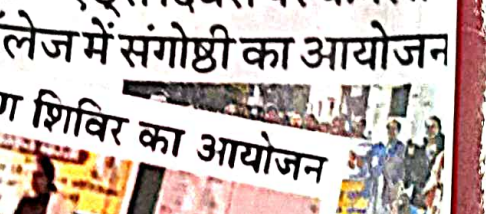 लेज में संगोष्ठी का आयोजन
ण शिविर का आयोजन